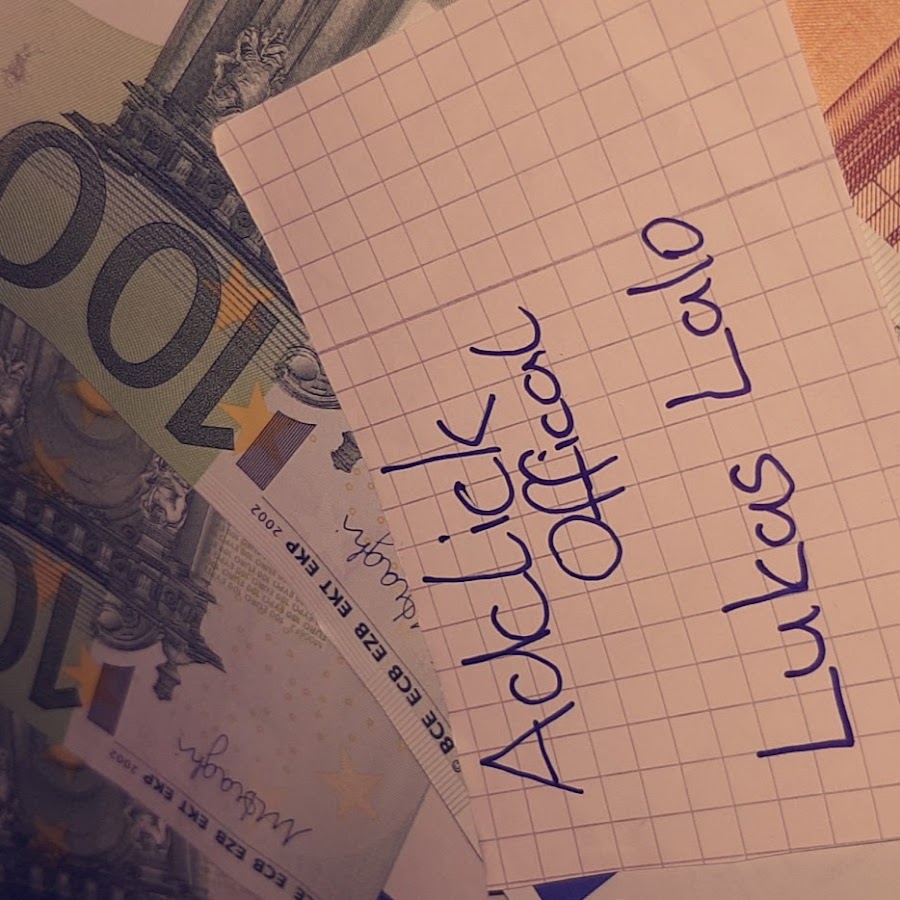 Ackclick
Offical
Lukas Lalo
100
BCE ECB EZB EKT EKP 2002
100
BCE ECB EZB EKT EKP 2002